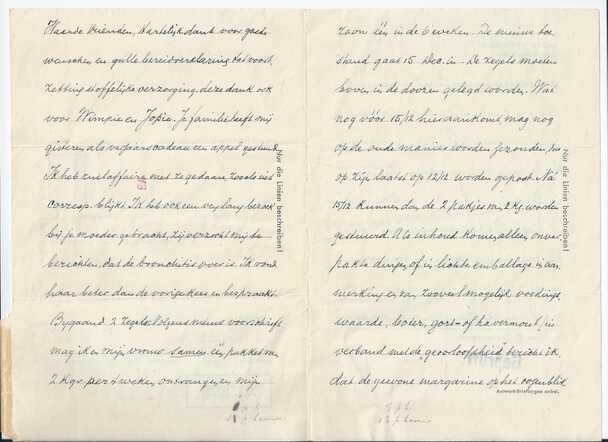 Waarde Vrienden, Hartelijk dank voor goede
wenschen en gulle bereidverklaring tot voort-
zetting stoffelijke verzorging, deze dank ook
voor Wimpie en Jopie. Je familie heeft mij
gisteren als verjaarscadeau een appel gestuurd
Ik heb zielaffaire met ze gedaan, zooals uit
corresp. blijkt. Ik heb ook een verjong bezoek
bij je moeder gebracht, zij verzocht mij te
berichten, dat de bronchitis over is. Ik vond
haar beter dan de vorige keer en bespraakt.
Bijgaand 2 zegels. Volgens nieuw voorschrift
mag ik en mijn vrouw samen één pakket van
2 kgr. per 4 weken, ontvangen, en mijn
zoon één in de 6 weken. De nieuwe toe-
stand gaat 15 Dec. in. De zegels moeten
boven in de doozen gelegd worden. Wat
nog vóór 15/12 hier aankomt, mag nog
op de oude manier worden gezonden, dus
op zijn laatst op 12/12 worden gepost. Ná
15/12 kunnen dan de 2 pakjes van 2 Kg. worden
gestuurd. Als inhoud komen alleen onver-
pakte dingen of in lichte emballage in aan-
merking en van zooveel mogelijk voedings-
waarde, boter, gort- of havermout, in
verband met de geoorloofdheid bericht ik,
dat de gewone margarine op het oogenblik
Nur die Linien beschreiben!
Nur die Linien beschreiben!